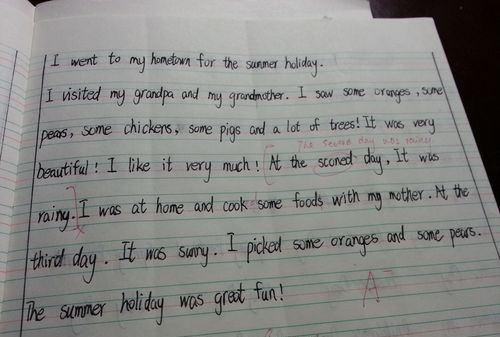 I went to my hometown for the summer holiday.
I visited my grandpa and my grandmother. I saw some oranges, some
pears, some chickens, some pigs and a lot of trees! It was very
The second day was rainy
beautiful! I like it very much! At the sconed day, It was
rainy. I was at home and cook some foods with my mother. At the
third day. It was sunny. I picked some oranges and some pears.
The summer holiday was great fun!
A